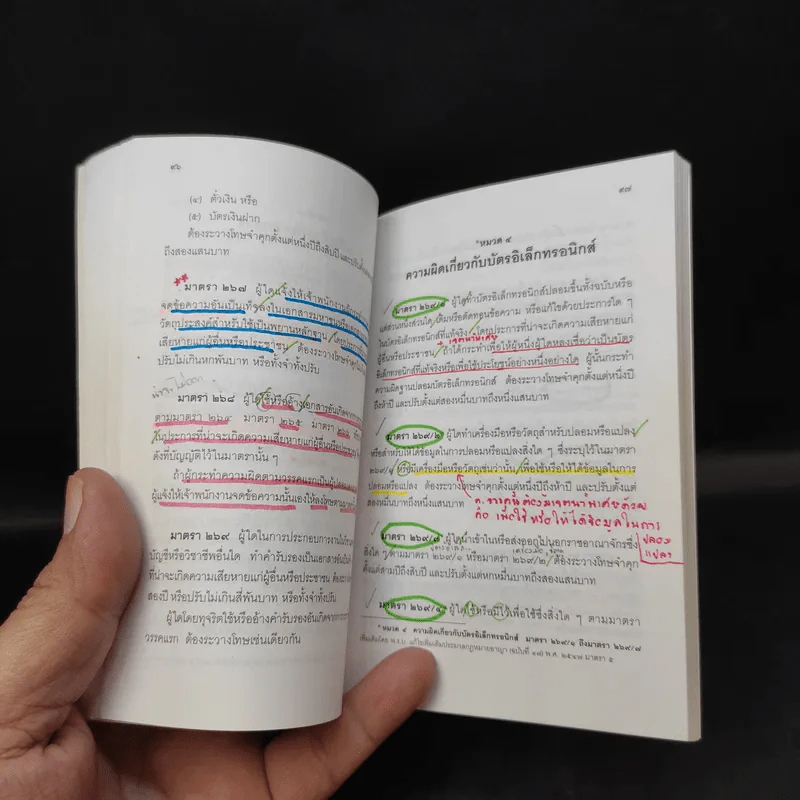 ๙๖
(๔) ตั๋วเงิน หรือ
(๕) บัตรเงินฝาก
ต้องระวางโทษจำคุกตั้งแต่หนึ่งปีถึงสิบปี และปรับตั้งแต่
ถึงสองแสนบาท
** มาตรา ๒๖๗ ผู้ใดแจ้งให้เจ้าพนักงาน
จดข้อความอันเป็นเท็จลงในเอกสารมหาชน
วัตถุประสงค์สำหรับใช้เป็นพยานหลักฐาน โดยประการ
เสียหายแก่ผู้อื่นหรือประชาชน ต้องระวางโทษจำคุก
ปรับไม่เกินหกพันบาท หรือทั้งจำทั้งปรับ
มาตรา ๒๖๘ ผู้ใดใช้หรืออ้างเอกสารอันเกิดจาก
ตามมาตรา ๒๖๔ มาตรา ๒๖๕ มาตรา
ในประการที่น่าจะเกิดความเสียหายแก่ผู้อื่นหรือ
ดังที่บัญญัติไว้ในมาตรานั้น ๆ
ถ้าผู้กระทำความผิดตามวรรคแรกเป็นผู้
ผู้แจ้งให้เจ้าพนักงานจดข้อความนั้นเอง ให้ลงโทษตาม
มาตรา ๒๖๙ ผู้ใดในการประกอบการงานในวิชา
บัญชีหรือวิชาชีพอื่นใด ทำคำรับรองเป็นเอกสารอันเป็น
ที่น่าจะเกิดความเสียหายแก่ผู้อื่นหรือประชาชน ต้อง
สองปี หรือปรับไม่เกินสี่พันบาท หรือทั้งจำทั้งปรับ
ผู้ใดโดยทุจริตใช้หรืออ้างคำรับรองอันเกิดจากการ
วรรคแรก ต้องระวางโทษเช่นเดียวกัน
๙๗
*หมวด ๔
ความผิดเกี่ยวกับบัตรอิเล็กทรอนิกส์
มาตรา ๒๖๙/๑ ผู้ใดทำบัตรอิเล็กทรอนิกส์ปลอมขึ้นทั้งฉบับหรือ
แต่ส่วนหนึ่งส่วนใด เติมหรือตัดทอนข้อความ หรือแก้ไขด้วยประการใด ๆ
ในบัตรอิเล็กทรอนิกส์ที่แท้จริง โดยประการที่น่าจะเกิดความเสียหายแก่
เจตนาพิเศษ
ผู้อื่นหรือประชาชน ถ้าได้กระทำเพื่อให้ผู้หนึ่งผู้ใดหลงเชื่อว่าเป็นบัตร
อิเล็กทรอนิกส์ที่แท้จริงหรือเพื่อใช้ประโยชน์อย่างหนึ่งอย่างใด ผู้นั้นกระทำ
ความผิดฐานปลอมบัตรอิเล็กทรอนิกส์ ต้องระวางโทษจำคุกตั้งแต่หนึ่งปี
ถึงห้าปี และปรับตั้งแต่สองหมื่นบาทถึงหนึ่งแสนบาท
มาตรา ๒๖๙/๒ ผู้ใดทำเครื่องมือหรือวัตถุสำหรับปลอมหรือแปลง
หรือสำหรับให้ได้ข้อมูลในการปลอมหรือแปลงสิ่งใด ๆ ซึ่งระบุไว้ในมาตรา
๒๖๙/๑ หรือมีเครื่องมือหรือวัตถุเช่นว่านั้น เพื่อใช้หรือให้ได้ข้อมูลในการ
ปลอมหรือแปลง ต้องระวางโทษจำคุกตั้งแต่หนึ่งปีถึงห้าปี และปรับตั้งแต่
สองหมื่นบาทถึงหนึ่งแสนบาท
คือ เพื่อใช้ หรือให้ได้ข้อมูลในการ
ปลอม
แปลง
มาตรา ๒๖๙/๓ ผู้ใดนำเข้าในหรือส่งออกไปนอกราชอาณาจักรซึ่ง
สิ่งใด ๆ ตามมาตรา ๒๖๙/๑ หรือมาตรา ๒๖๙/๒ ต้องระวางโทษจำคุก
ตั้งแต่สามปีถึงสิบปี และปรับตั้งแต่หกหมื่นบาทถึงสองแสนบาท
มาตรา ๒๖๙/๔ ผู้ใดใช้หรือมีไว้เพื่อใช้ซึ่งสิ่งใด ๆ ตามมาตรา
* หมวด ๔ ความผิดเกี่ยวกับบัตรอิเล็กทรอนิกส์ มาตรา ๒๖๙/๑ ถึงมาตรา ๒๖๙/๗
เพิ่มเติมโดย พ.ร.บ. แก้ไขเพิ่มเติมประมวลกฎหมายอาญา (ฉบับที่ ๑๗) พ.ศ. ๒๕๔๗ มาตรา ๕